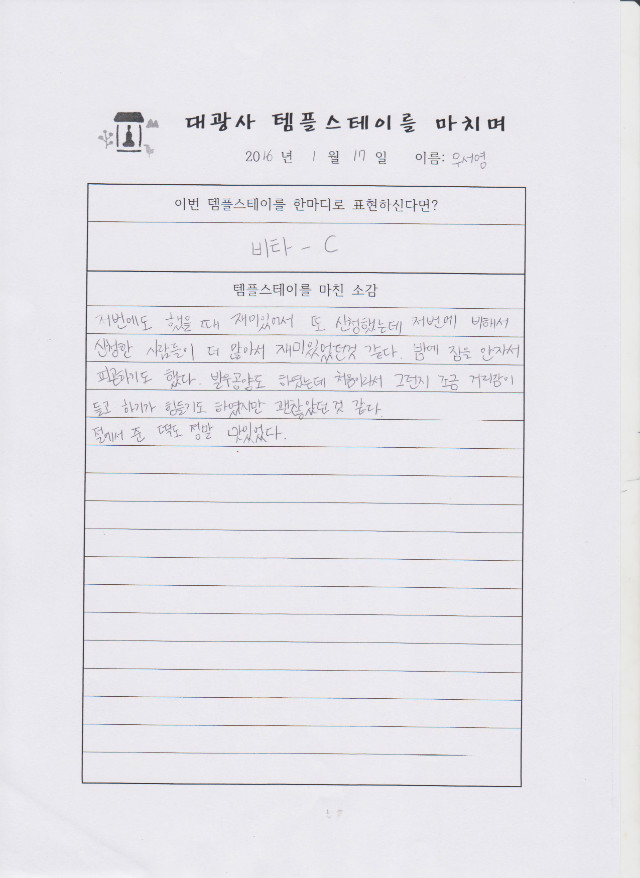 대광사 템플스테이를 마치며
2016 년 1 월 17 일 이름: 우서영
이번 템플스테이를 한마디로 표현하신다면?
비타 - C
템플스테이를 마친 소감
저번에도 했을 때 재미있어서 또 신청했는데 저번에 비해서
신청한 사람들이 더 많아서 재미있었던것 같다. 밤에 잠을 안자서
피곤하기도 했다. 발우공양도 하였는데 처음이라서 그런지 조금 거리감이
들고 하기가 힘들기도 하였지만 괜찮았던 것 같다.
절에서 준 떡도 정말 맛있었다.